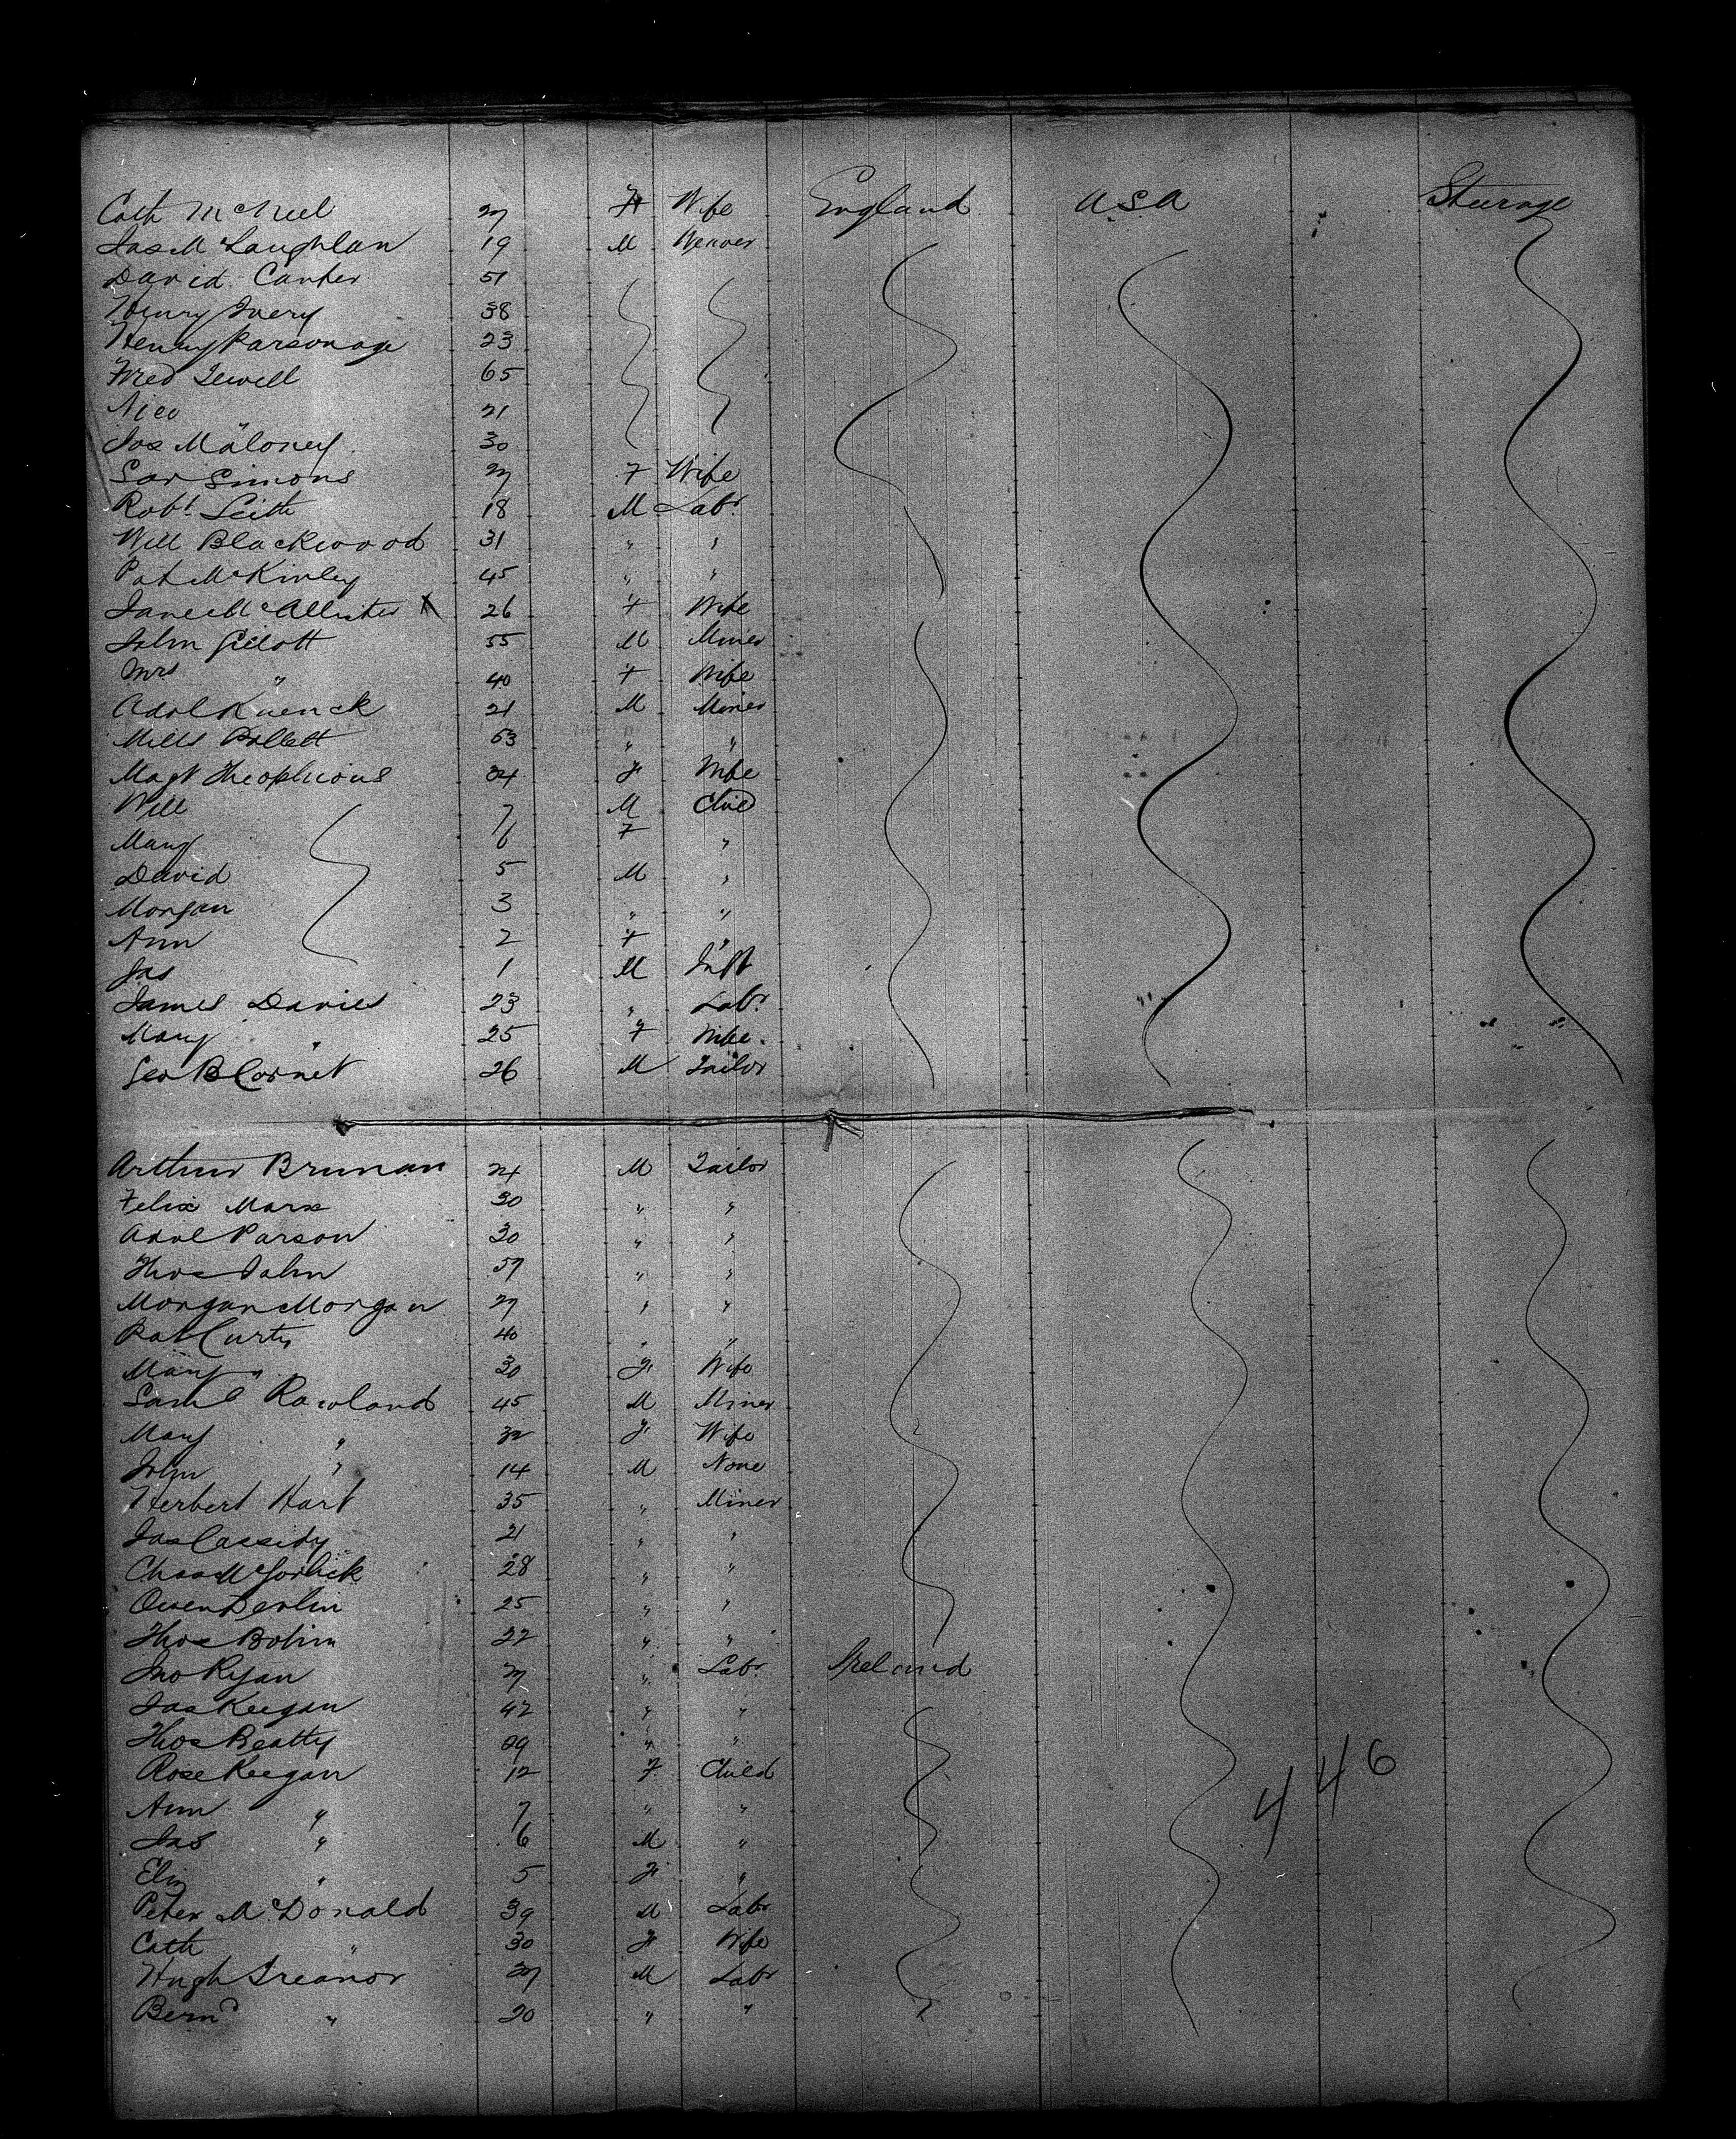 Cath McNeel 27 F Wife England U.S.A Steerage
Jas McLaughlan 19 M Weaver
David Canter 51
Henry Ivery 38
Henry Parsonage 23
Fred Jewell 65
Nico " 21
Jos Maloney 30
Sar Simons 27 F Wife
Robt Leith 18 M Labr
Will Blackwood 31 " "
Pat McKinley 45 " "
Jane McAllister 26 F Wife
John Gilott 55 M Miner
Mrs " 40 F Wife
Adol Kuenck 21 M Miner
Mills Pollett 53 " "
Magt Theophicous 34 F Wife
Will 7 M Chid
Mary 6 F "
David 5 M "
Morgan 3 " "
Ann 2 F "
Jas 1 M Inft
James Davies 23 " Labr
Mary " 25 F Wife
Geo B Cornet 26 M Tailor
Arthur Brunan 24 M Tailor
Felix Marx 30 " "
Adol Parson 30 " "
Thos John 57 " "
Morgan Morgan 27 " "
Pat Curtis 40 " "
Mary " 30 F Wife
Saml Rowland 45 M Miner
Mary " 32 F Wife
John " 14 M None
Herbert Hart 35 " Miner
Jas Cassidy 21 " "
Chas McGorlick 28 " "
Owen Devlin 25 " "
Thos Bolin 22 " "
Jno Ryan 27 " Labr Ireland
Jas Keegan 42 " "
Thos Beatty 29 " "
Rose Keegan 12 F Child
Ann " 7 " "
Jas " 6 M "
Eliz " 5 F "
Peter McDonald 39 M Labr
Cath " 30 F Wife
Hugh Treanor 27 M Labr
Bernd " 20 " "
446